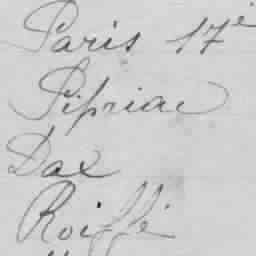 Paris 17e
Pipriac
Dax
Roiffé